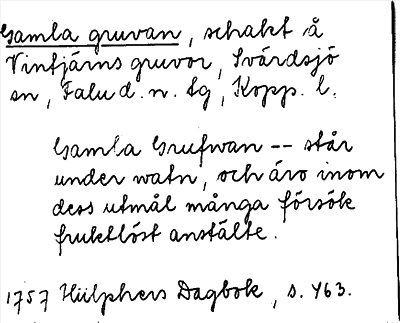 Gamla gruvan, schakt å
Vintjärns gruvor, Svärdsjö
sn, Falu d. n. tg, Kopp. l.
Gamla Grufwan -- står
under watn, och äro inom
dess utmål många försök
fruktlöst anstälte.
1757 Hülphers Dagbok, s. 463.